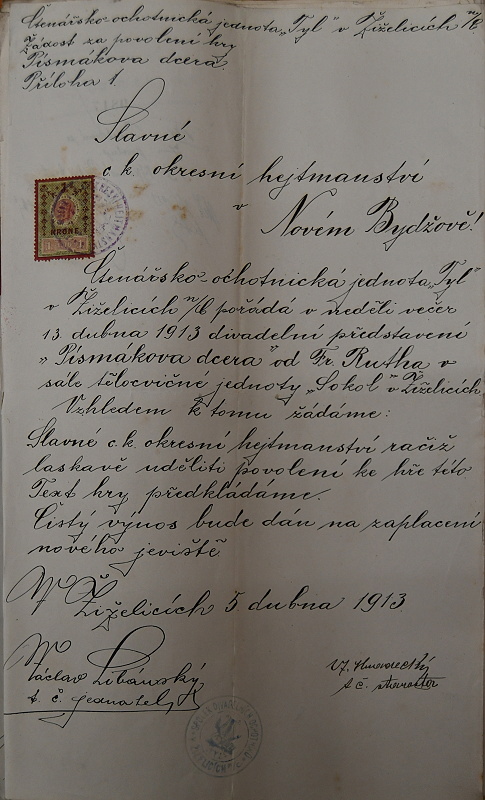 Čtenářsko-ochotnická jednota „Tyl" v Žiželicích n/C
Žádost za povolení hry
Písmákova dcera.
Příloha 1.
Slavné
c. k. okresní hejtmanství
v
Novém Bydžově!
1
KRONE
1
Čtenářsko-ochotnická jednota „Tyl"
v Žiželicích n/C pořádá v neděli večer
13. dubna 1913 divadelní představení
„Písmákova dcera" od Fr. Rutha v
sále tělocvičné jednoty „Sokol" v Žiželicích
Vzhledem k tomu žádáme:
Slavné c. k. okresní hejtmanství račiž
laskavě uděliti povolení ke hře této
Text hry předkládáme.
Čistý výnos bude dán na zaplacení
nového jeviště
V Žiželicích 5 dubna 1913.
Václav Libánský
t. č. jednatel
t č. starosta